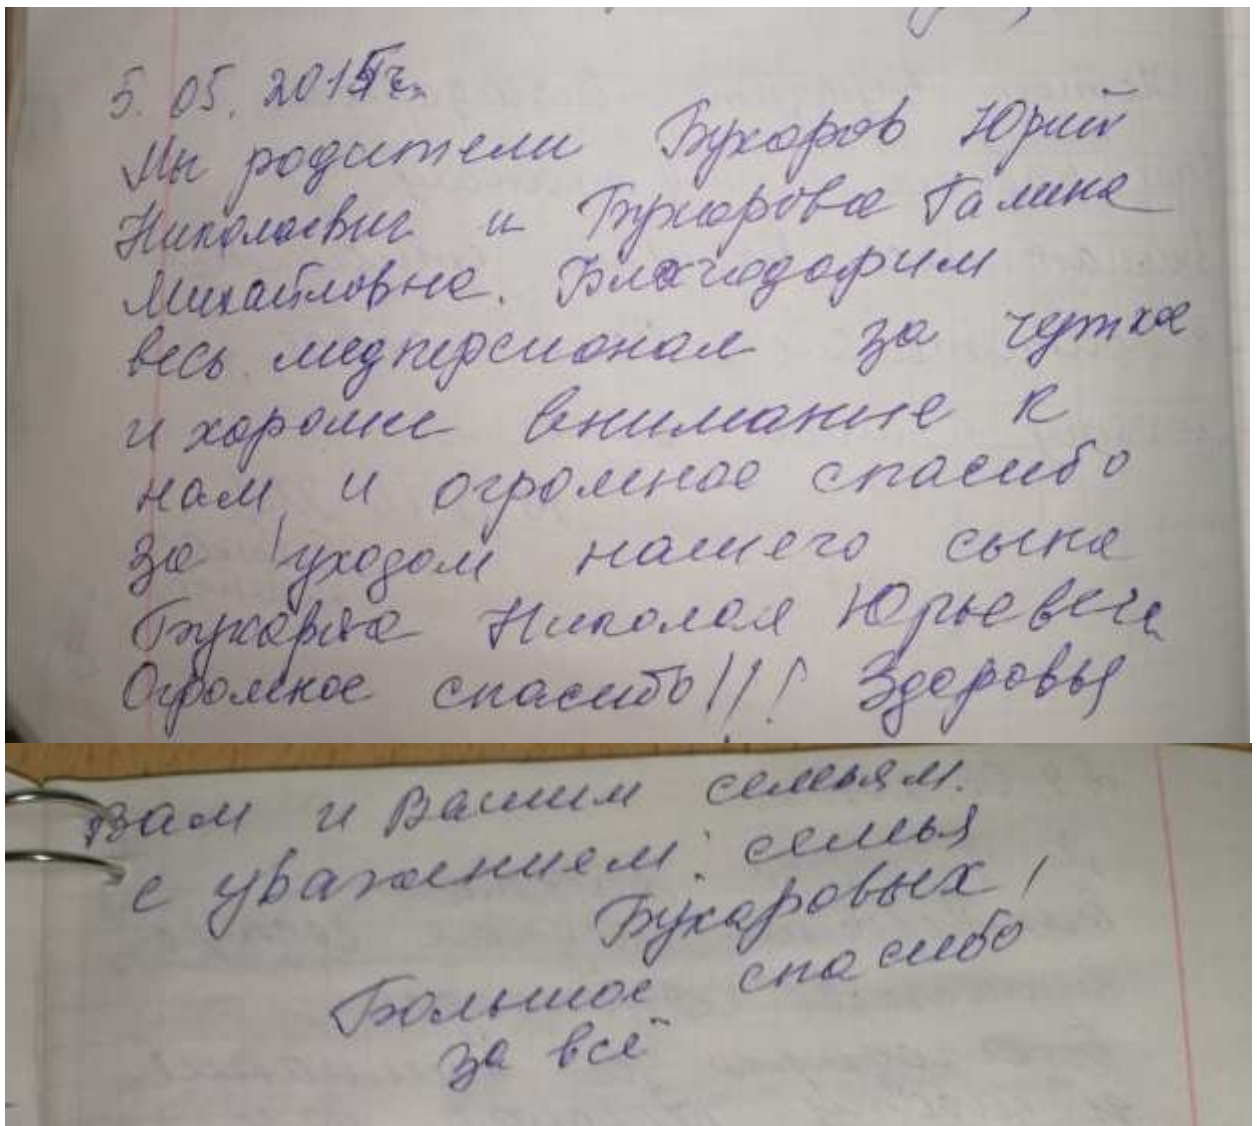 5. 05. 2015г.
Мы родители Бухаров Юрий
Николаевич и Бухарова Галина
Михайловна. Благодарим
весь медперсионал за чуткое
и хорошие внимание к
нам, и огромное спасибо
за уходом нашего сына
Бухарова Николая Юрьевича
Огромное спасибо!!! Здоровья
Вам и Вашим семьям.
с уважением: семья
Бухаровых!
Большое спасибо
за всё